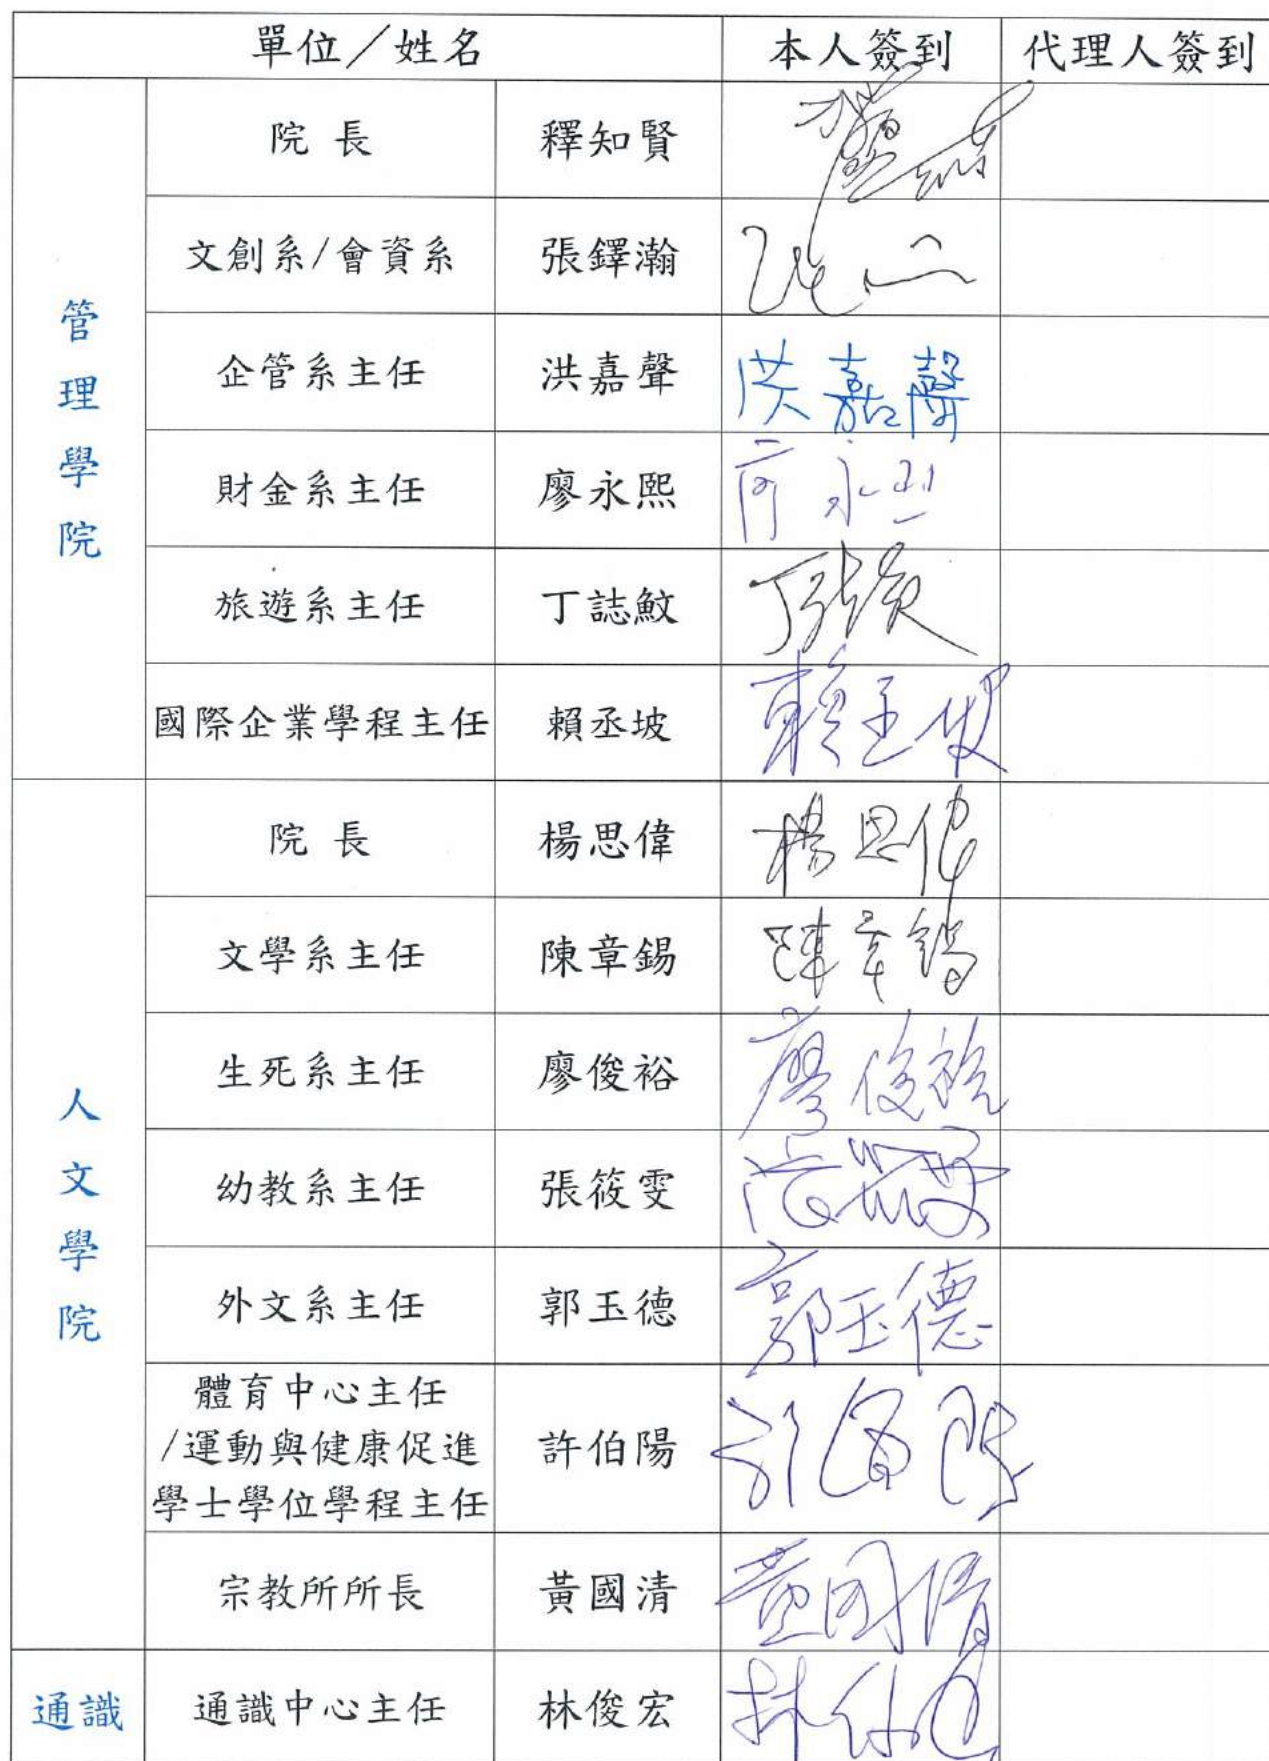 單位／姓名 本人簽到 代理人簽到
管理學院
院長 釋知賢
文創系/會資系 張鐸瀚
企管系主任 洪嘉聲 洪嘉聲
財金系主任 廖永熙
旅遊系主任 丁誌魰
國際企業學程主任 賴丞坡
人文學院
院長 楊思偉 楊思偉
文學系主任 陳章錫 陳章錫
生死系主任 廖俊裕 廖俊裕
幼教系主任 張筱雯
外文系主任 郭玉德 郭玉德
體育中心主任
/運動與健康促進
學士學位學程主任
許伯陽
宗教所所長 黃國清 黃國清
通識 通識中心主任 林俊宏